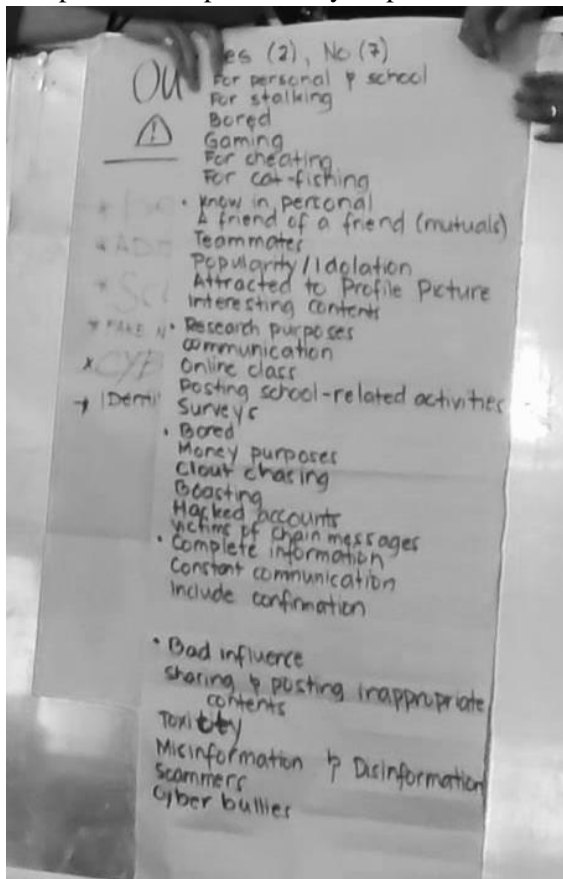 es (2), No (7)
For personal & school
For stalking
Bored
Gaming
For cheating
For cat-fishing
• Know in personal
A friend of a friend (mutuals)
Teammates
Popularity/Idolation
Attracted to Profile Picture
Interesting contents
• Research purposes
communication
Online class
Posting school-related activities
Surveys
• Bored
Money purposes
Clout chasing
Boasting
Hacked accounts
victims of chain messages
• Complete information
Constant communication
Include confirmation
• Bad influence
Sharing & posting inappropriate
contents
Toxicity
Misinformation & Disinformation
Scammers
Cyber bullies
OU
* ADD
* Sci
* FAKE N
* CYB
→ IDenti